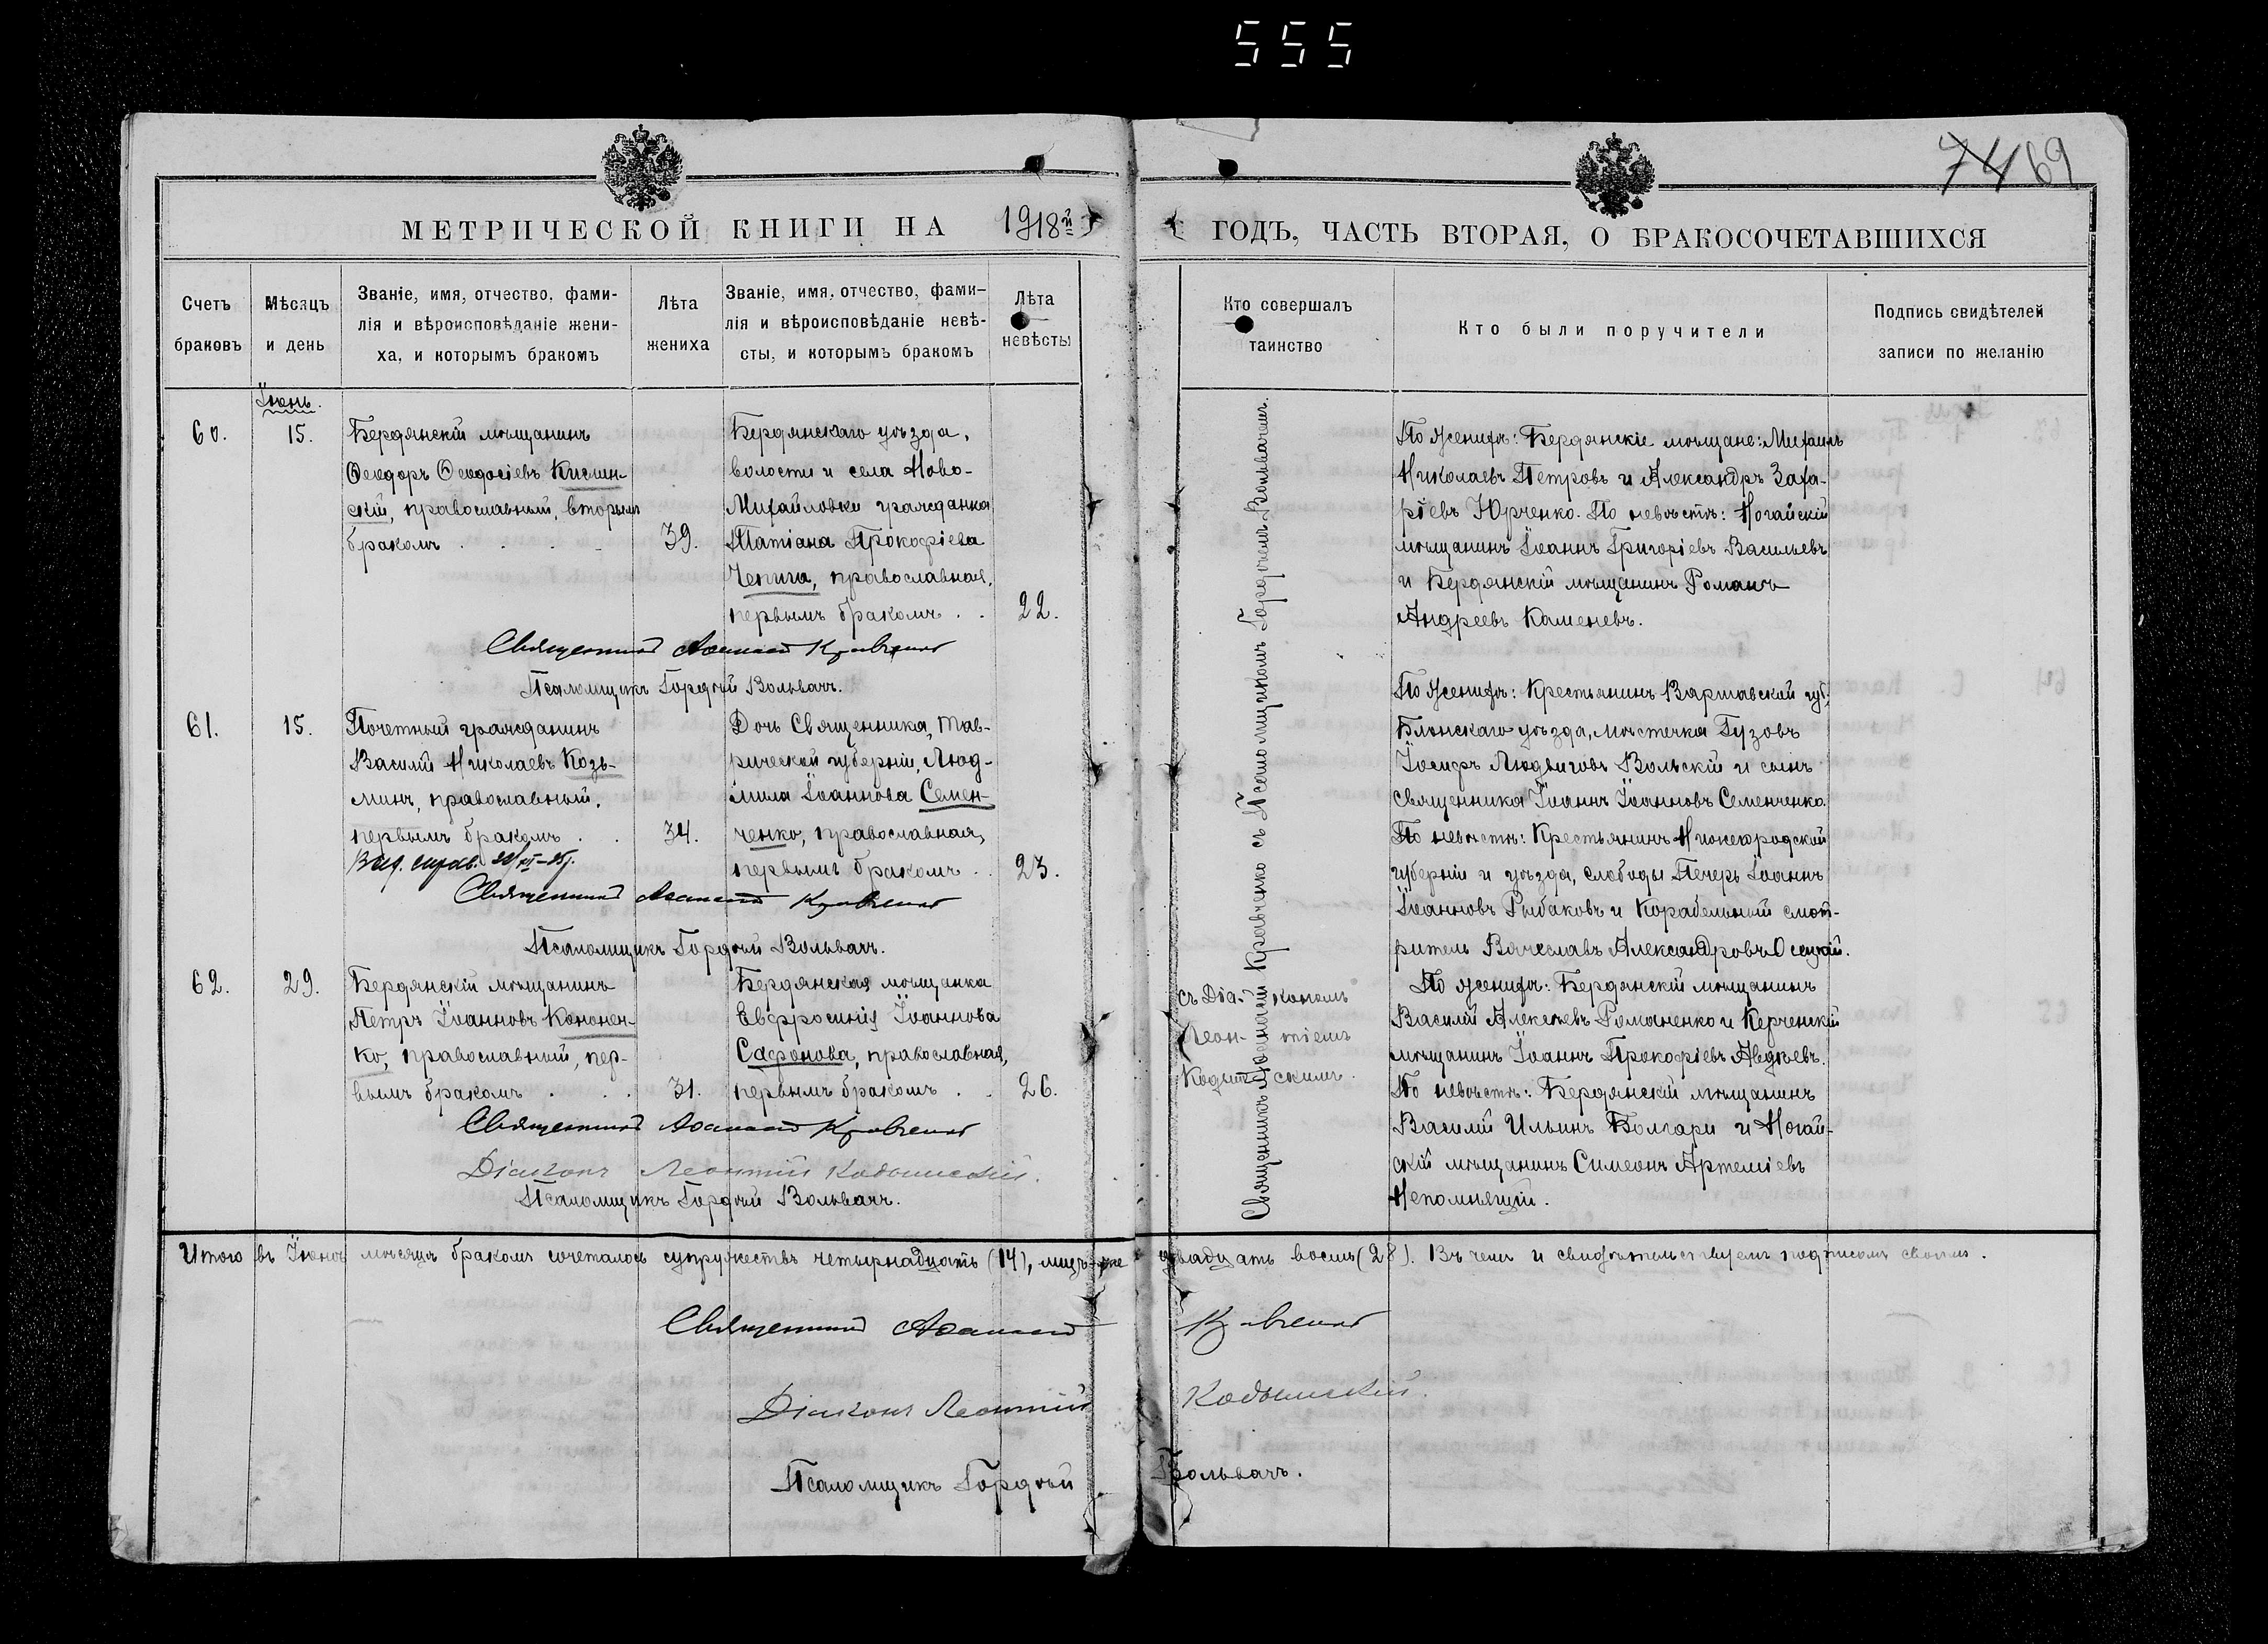 555
74 69
МЕТРИЧЕСКОЙ КНИГИ НА 1918й
ГОДЪ, ЧАСТЬ ВТОРАЯ, О БРАКОСОЧЕТАВШИХСЯ
Счетъ
браковъ
Мѣсяцъ
и день
Званіе, имя, отчество, фами-
лія и вѣроисповѣданіе жени-
ха, и которымъ бракомъ
Лѣта
жениха
Званіе, имя, отчество, фами-
лія и вѣроисповѣданіе невѣ-
сты, и которымъ бракомъ
Лѣта
невѣсты
Кто совершалъ
таинство
Кто были поручители
Подпись свидѣтелей
записи по желанію
Іюнь.
60.
15.
Бердянскій мѣщанинъ
Ѳеодоръ Ѳеодосіевъ Кислин-
скій, православный, вторымъ
бракомъ . . . .
39.
Бердянскаго уѣзда,
волости и села Ново-
Михайловки гражданка
Татіана Прокофіева
Чепига, православная,
первымъ бракомъ . .
22.
По женихѣ: Бердянскіе мѣщане: Михаилъ
Николаевъ Петровъ и Александръ Заха-
ріевъ Юрченко. По невѣстѣ: Ногайскій
мѣщанинъ Іоаннъ Григоріевъ Васильевъ
и Бердянскій мѣщанинъ Романъ
Андреевъ Каменевъ.
Священникъ Аѳанасій Кравченко
Псаломщикъ Гордѣй Вольвачъ.
61.
15.
Почетный гражданинъ
Василій Николаевъ Козь-
минъ, православный,
первымъ бракомъ . .
34.
Выд. справ. 22/XII-25г.
Дочь Священника, Тав-
рической губерніи, Люд-
мила Іоаннова Семен-
ченко, православная,
первымъ бракомъ . .
23.
По женихѣ: Крестьянинъ Варшавской губ.
Блонскаго уѣзда, мѣстечка Гузовъ
Іосифъ Людвиговъ Вольскій и сынъ
Священника Іоаннъ Іоанновъ Семенченко.
По невѣстѣ: Крестьянинъ Нижегородской
губерніи и уѣзда, слободы Печеръ Іоаннъ
Іоанновъ Рыбаковъ и Корабельный смот-
ритель Вячеславъ Александровъ
Священникъ Аѳанасій Кравченко
Псаломщикъ Гордѣй Вольвачъ.
62.
29.
Бердянскій мѣщанинъ
Петръ Іоанновъ Кононен-
ко, православный, пер-
вымъ бракомъ . . .
31.
Бердянская мѣщанка
Евфросинія Іоаннова
Сафонова, православная,
первымъ бракомъ . .
26.
По женихѣ: Бердянскій мѣщанинъ
Василій Алексѣевъ Романенко и Керченскій
мѣщанинъ Іоаннъ Прокофіевъ Авдѣевъ.
По невѣстѣ: Бердянскій мѣщанинъ
Василій Ильинъ Болгари и Ногай-
скій мѣщанинъ Симеонъ Артеміевъ
Непомнящій.
Священникъ Аѳанасій Кравченко
Діаконъ Леонтій
Псаломщикъ Гордѣй Вольвачъ.
Священникъ Аѳанасій Кравченко съ Псаломщикомъ Гордѣемъ Вольвачемъ.
съ Діа- кономъ
Леон- тіемъ
Итого въ Іюнѣ мѣсяцѣ бракомъ сочеталось супружествъ четырнадцать (14), лицъ же двадцать восемь (28). Въ чемъ и свидѣтельствуемъ подписомъ своимъ.
Священникъ Аѳанасій Кравченко
Діаконъ Леонтій
Псаломщикъ Гордѣй Вольвачъ.